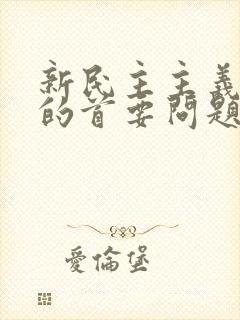 新民主主義
的首要問題
愛倫堡